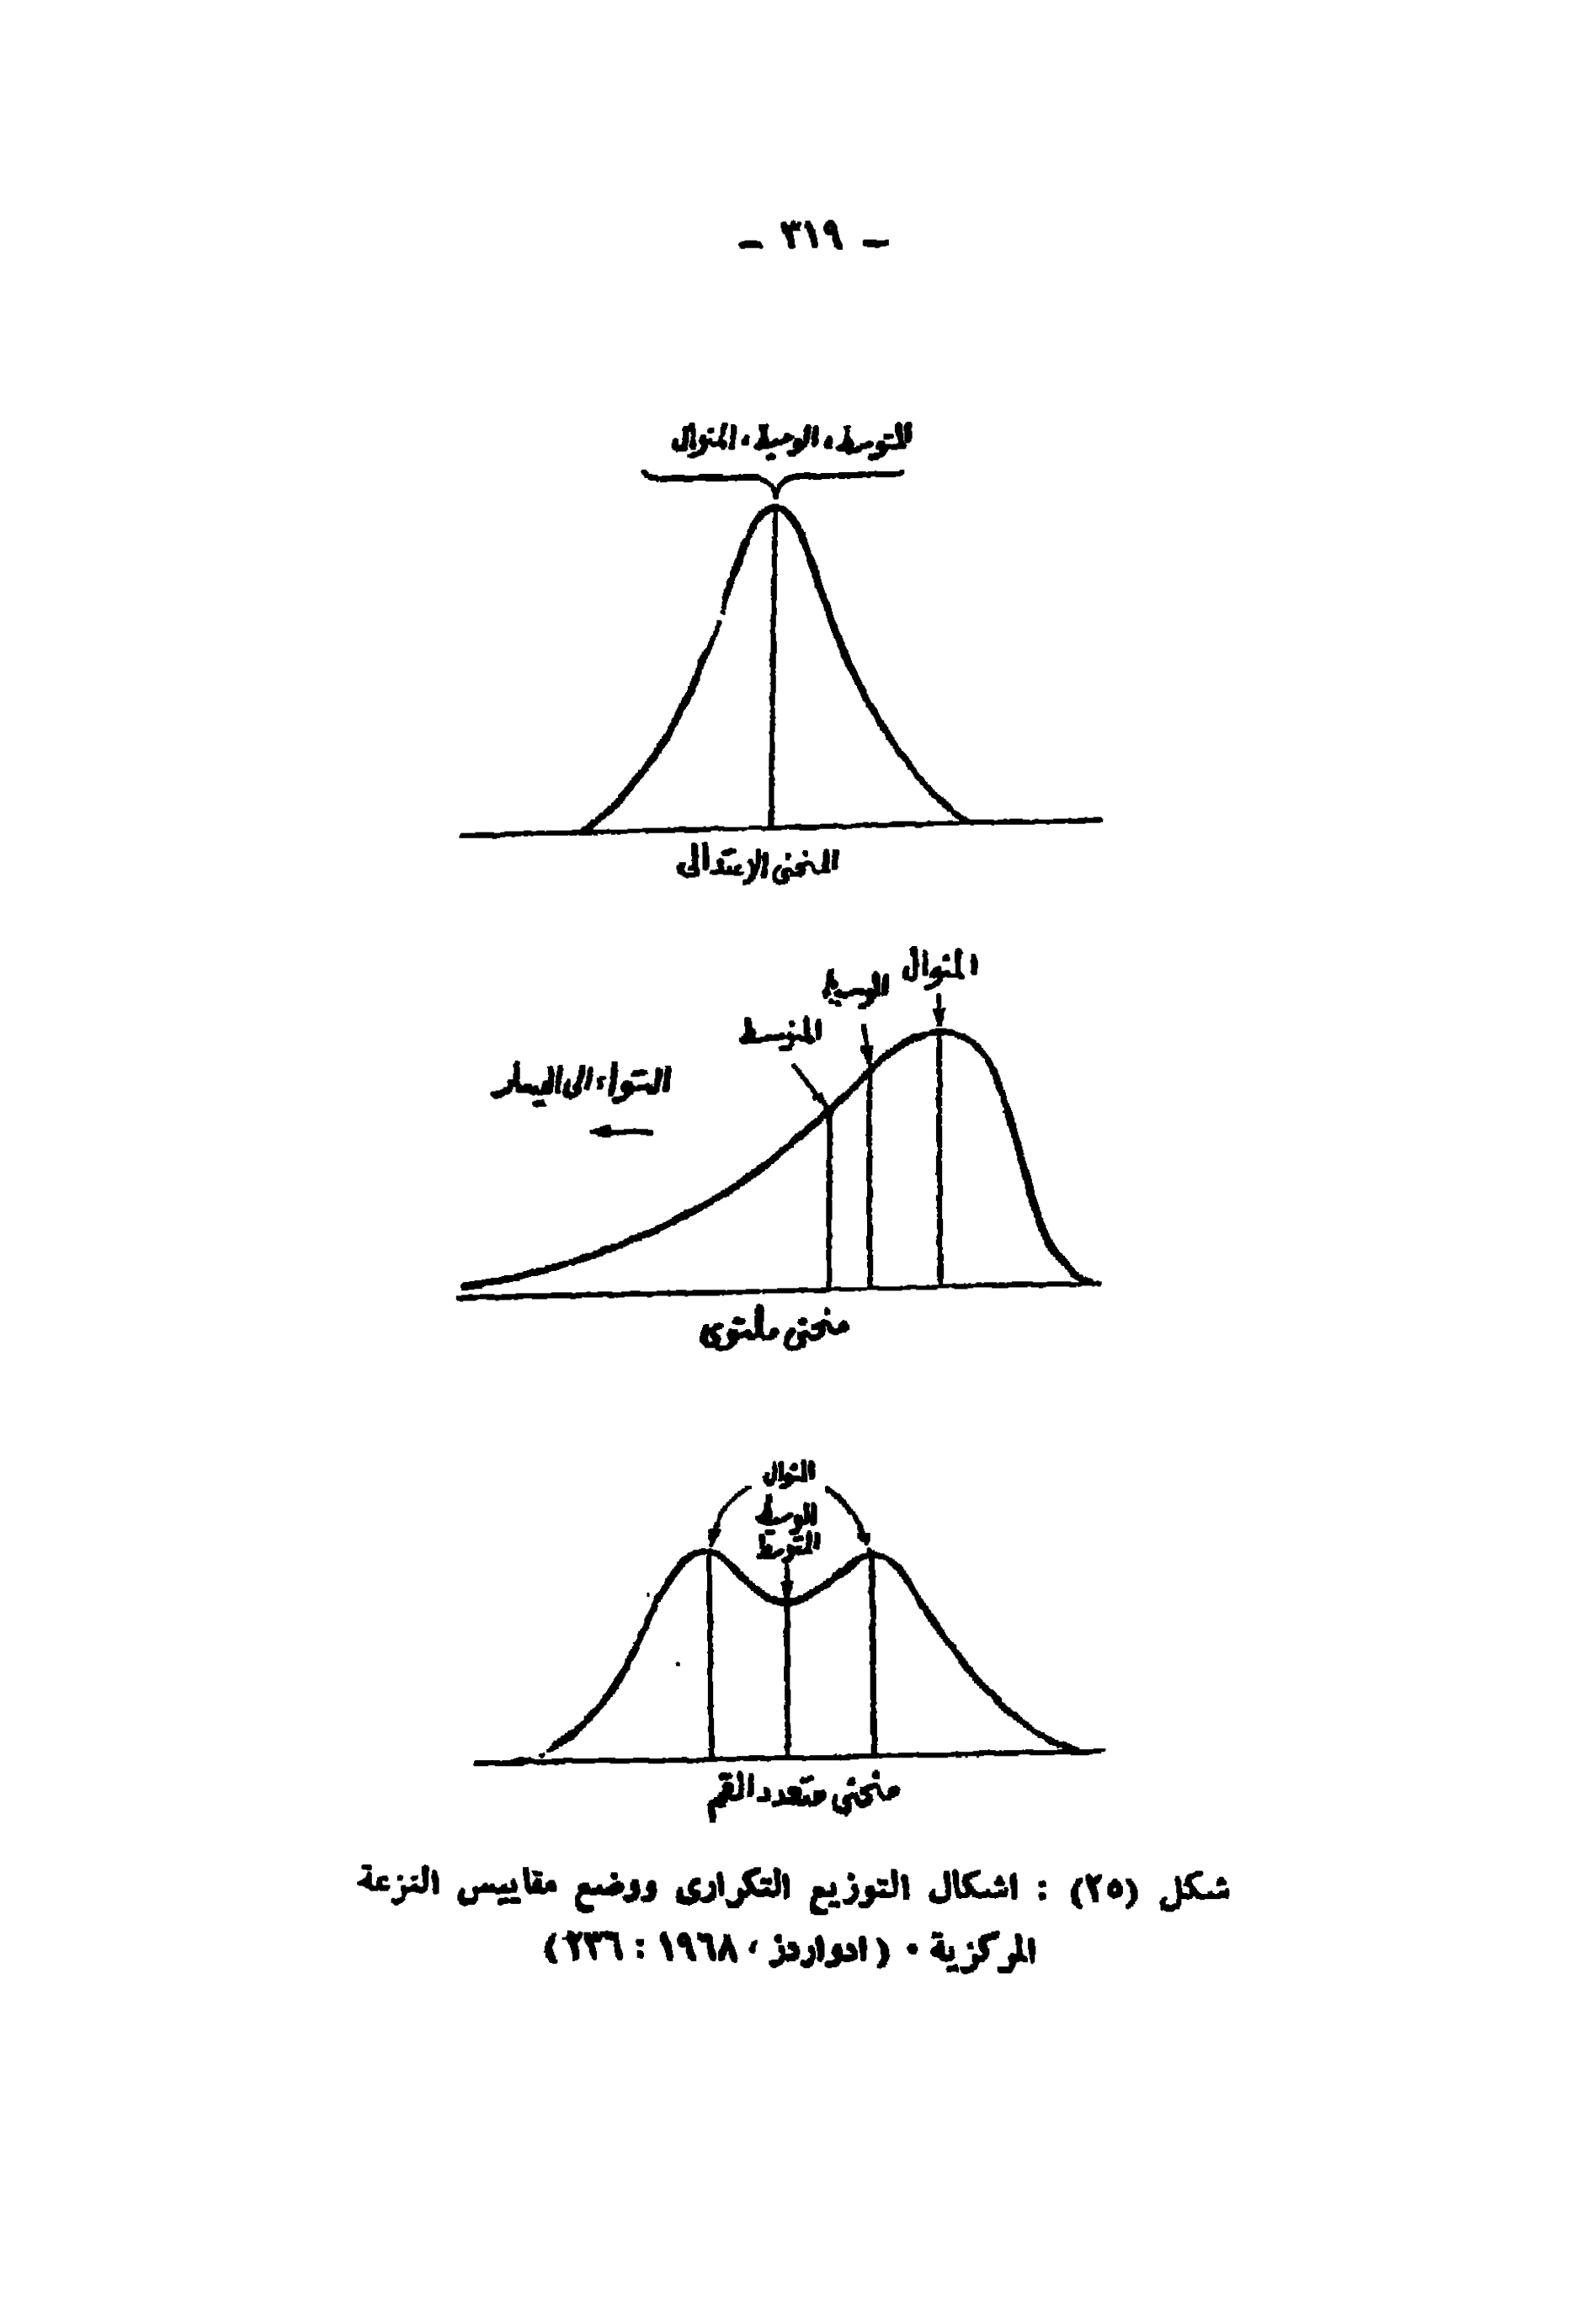 – ٣١٩ –
المتوسط ، الوسيط ، المنوال
المنحنى الاعتدالى
المنوال
الوسيط
المتوسط
التواء الى اليسار
منحنى ملتوى
المنوال
الوسيط
المتوسط
منحنى متعدد القمم
شكل (٢٥) : اشكال التوزيع التكرارى ووضع مقاييس النزعة
المركزية ٠ (ادواردز ، ١٩٦٨ : ٢٣٦)